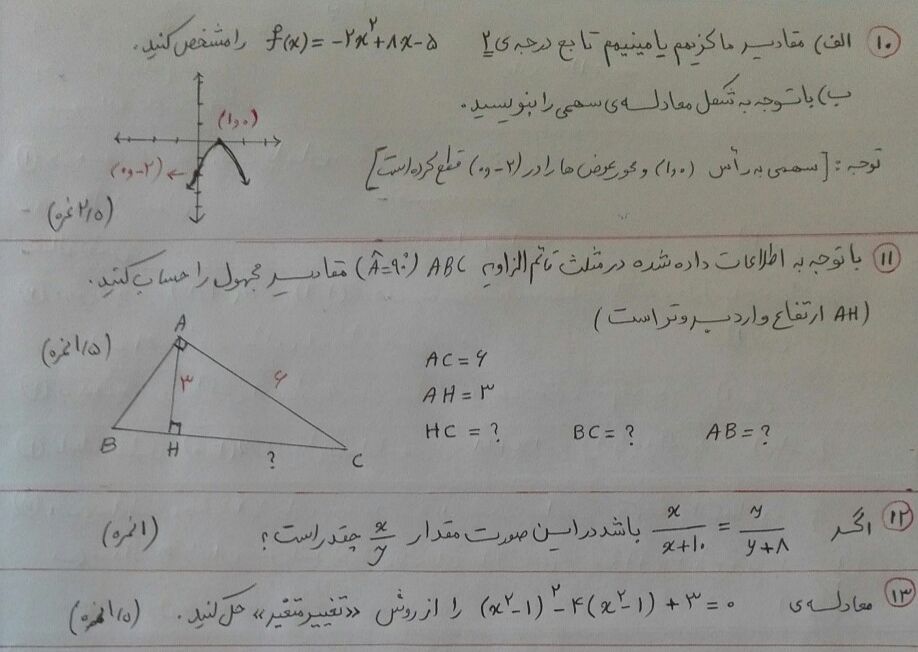 ۱۰) الف) مقادیر ماکزیمم یا مینیمم تابع درجه‌ی ۲ f(x) = -۲x²+۸x-۵ را مشخص کنید.
ب) باتوجه به شکل معادله‌ی سهمی را بنویسید.
(۱,۰)
(۰,-۲)
توجه: [سهمی به رأس (۱,۰) و محور عرض‌ها را در (۰,-۲) قطع کرده است]
(۲/۵ نمره)
۱۱) با توجه به اطلاعات داده شده در مثلث قائم‌الزاویه ABC (Â=۹۰°) مقادیر مجهول را حساب کنید.
(AH ارتفاع وارد بر وتر است)
(۱/۵ نمره)
A
۳
۶
B
H
?
C
AC = ۶
AH = ۳
HC = ? BC = ? AB = ?
۱۲) اگر x/(x+۱۰) = y/(y+۸) باشد در این صورت مقدار x/y چقدر است؟ (۱ نمره)
۱۳) معادله‌ی (x²-۱)²-۴(x²-۱)+۳=۰ را از روش «تغییر متغیر» حل کنید. (۱/۵ نمره)